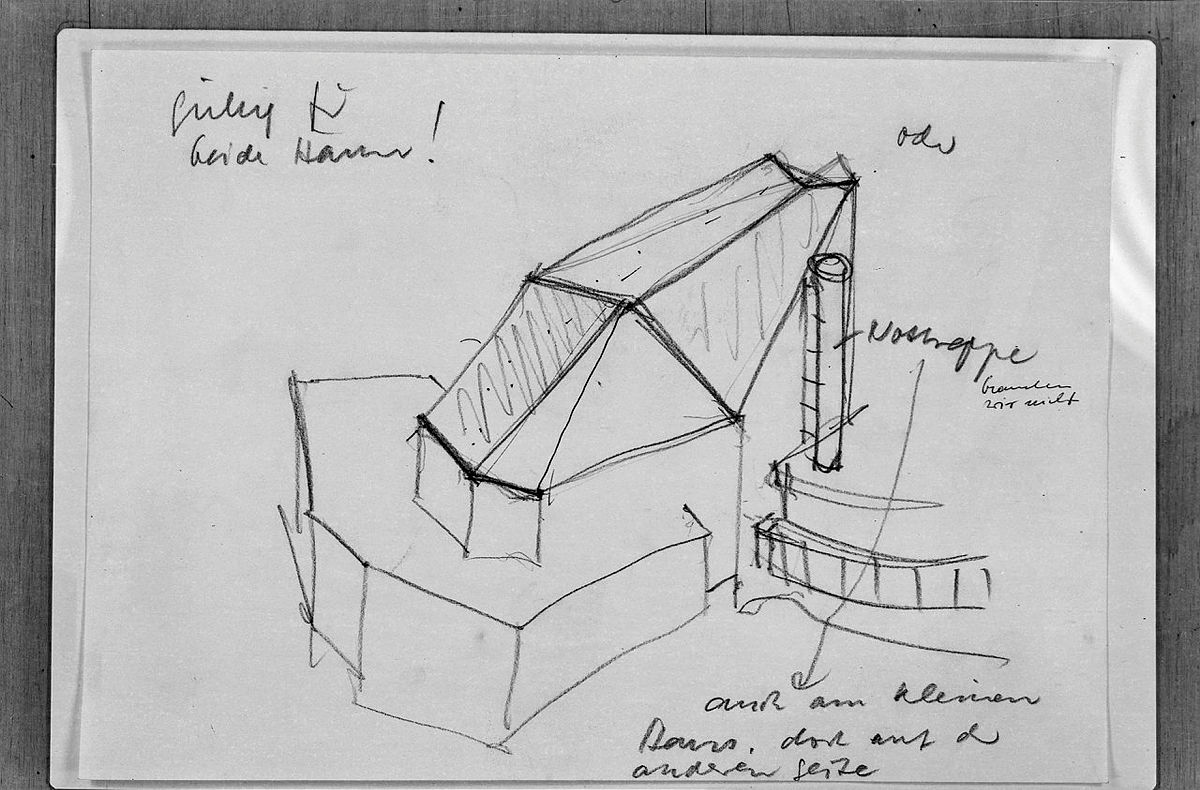 gültig für
beide Häuser!
oder
Nottreppe
brauchen
wir nicht
auch am kleinen
Haus, dort auf der
anderen Seite